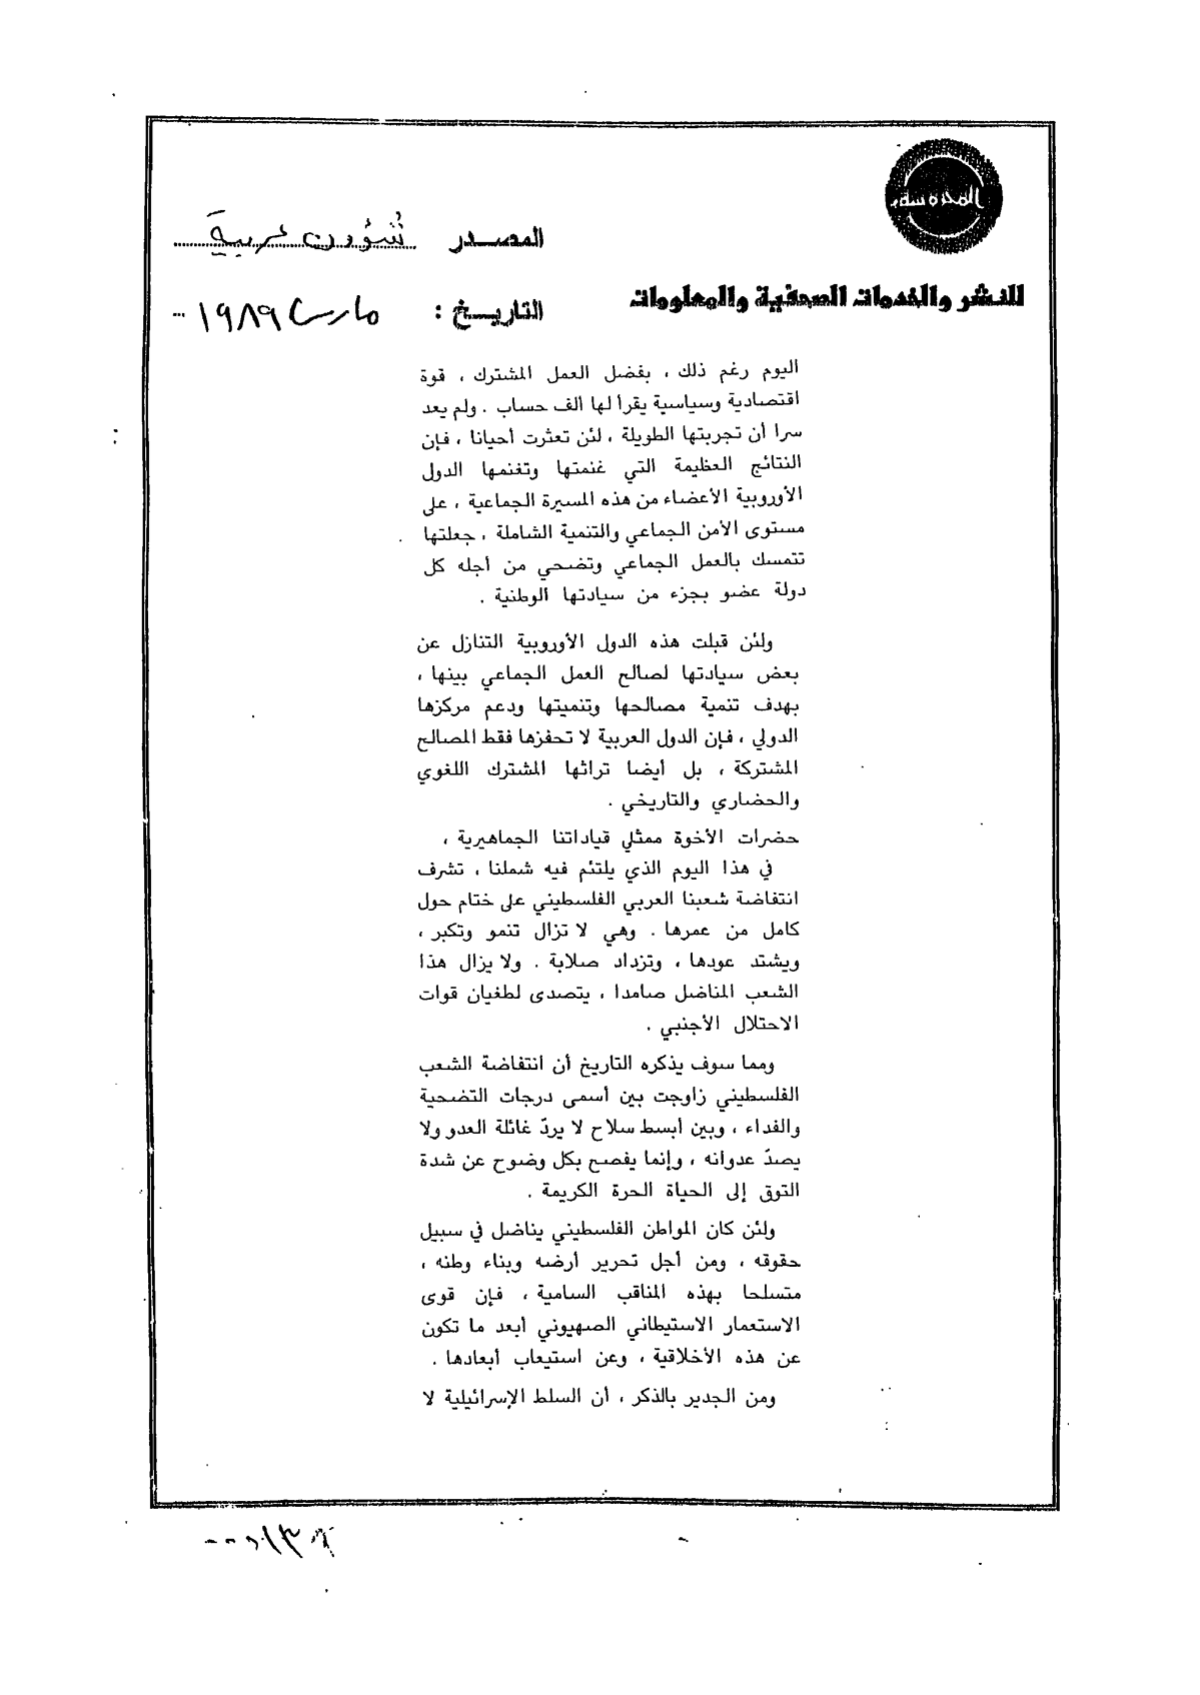 المحروسة
المصدر شؤون عربية
للنشر والخدمات الصحفية والمعلومات
التاريخ : مارس ١٩٨٩
اليوم رغم ذلك ، بفضل العمل المشترك ، قوة
اقتصادية وسياسية يقرأ لها ألف حساب . ولم يعد
سرا أن تجربتها الطويلة ، لئن تعثرت أحيانا ، فإن
النتائج العظيمة التي غنمتها وتغنمها الدول
الأوروبية الأعضاء من هذه المسيرة الجماعية ، على
مستوى الأمن الجماعي والتنمية الشاملة ، جعلتها
تتمسك بالعمل الجماعي وتضحي من أجله كل
دولة عضو بجزء من سيادتها الوطنية .
ولئن قبلت هذه الدول الأوروبية التنازل عن
بعض سيادتها لصالح العمل الجماعي بينها ،
بهدف تنمية مصالحها وتنميتها ودعم مركزها
الدولي ، فإن الدول العربية لا تحفزها فقط المصالح
المشتركة ، بل أيضا تراثها المشترك اللغوي
والحضاري والتاريخي .
حضرات الأخوة ممثلي قياداتنا الجماهيرية ،
في هذا اليوم الذي يلتئم فيه شملنا ، تشرف
انتفاضة شعبنا العربي الفلسطيني على ختام حول
كامل من عمرها . وهي لا تزال تنمو وتكبر ،
ويشتد عودها ، وتزداد صلابة . ولا يزال هذا
الشعب المناضل صامدا ، يتصدى لطغيان قوات
الاحتلال الأجنبي .
ومما سوف يذكره التاريخ أن انتفاضة الشعب
الفلسطيني زاوجت بين أسمى درجات التضحية
والفداء ، وبين أبسط سلاح لا يردّ غائلة العدو ولا
يصدّ عدوانه ، وإنما يفصح بكل وضوح عن شدة
التوق إلى الحياة الحرة الكريمة .
ولئن كان المواطن الفلسطيني يناضل في سبيل
حقوقه ، ومن أجل تحرير أرضه وبناء وطنه ،
متسلحا بهذه المناقب السامية ، فإن قوى
الاستعمار الاستيطاني الصهيوني أبعد ما تكون
عن هذه الأخلاقية ، وعن استيعاب أبعادها .
ومن الجدير بالذكر ، أن السلط الإسرائيلية لا